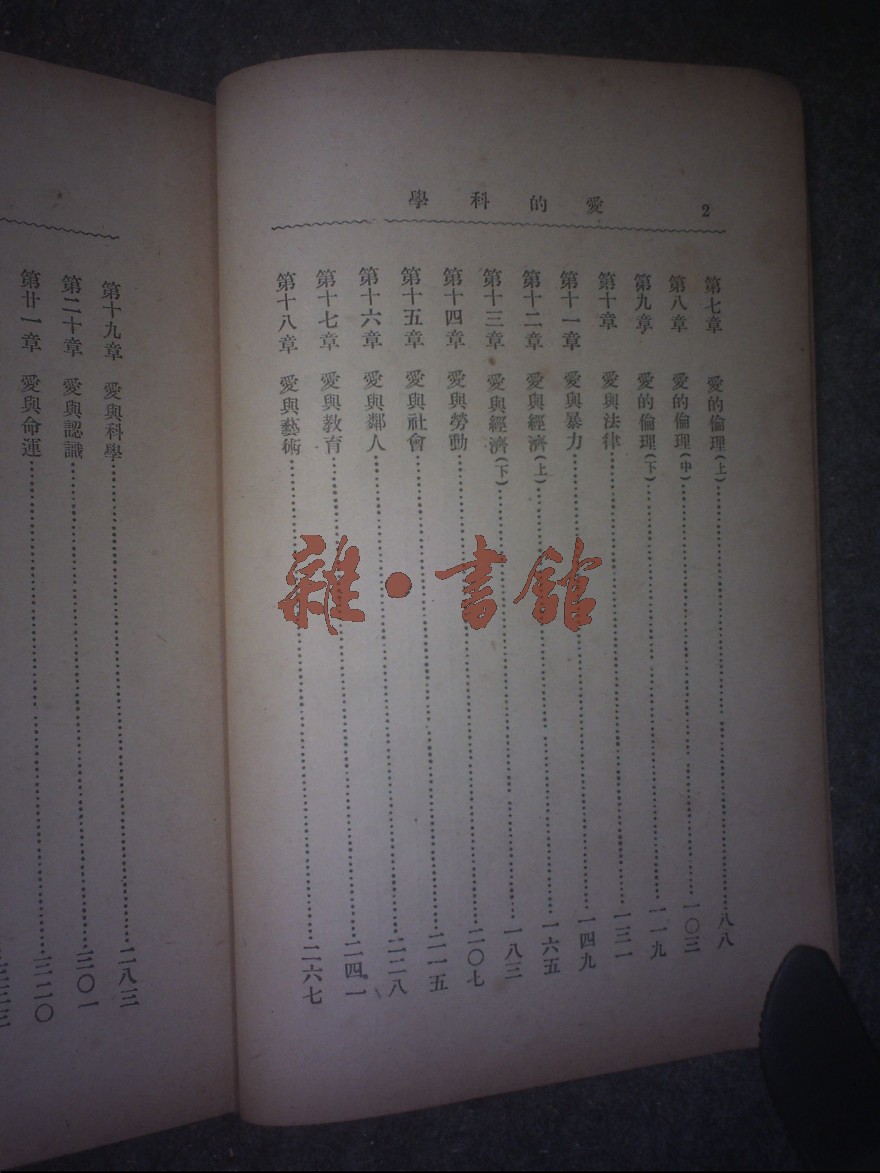 2 愛的科學
第七章 愛的倫理(上)……八八
第八章 愛的倫理(中)……一〇三
第九章 愛的倫理(下)……一一九
第十章 愛與法律……一三一
第十一章 愛與暴力……一四九
第十二章 愛與經濟(上)……一六五
第十三章 愛與經濟(下)……一八三
第十四章 愛與勞動……二〇七
第十五章 愛與社會……二一五
第十六章 愛與鄰人……二二八
第十七章 愛與教育……二四一
第十八章 愛與藝術……二六七
第十九章 愛與科學……二八三
第二十章 愛與認識……三〇一
第廿一章 愛與命運……三二〇
雜・書館